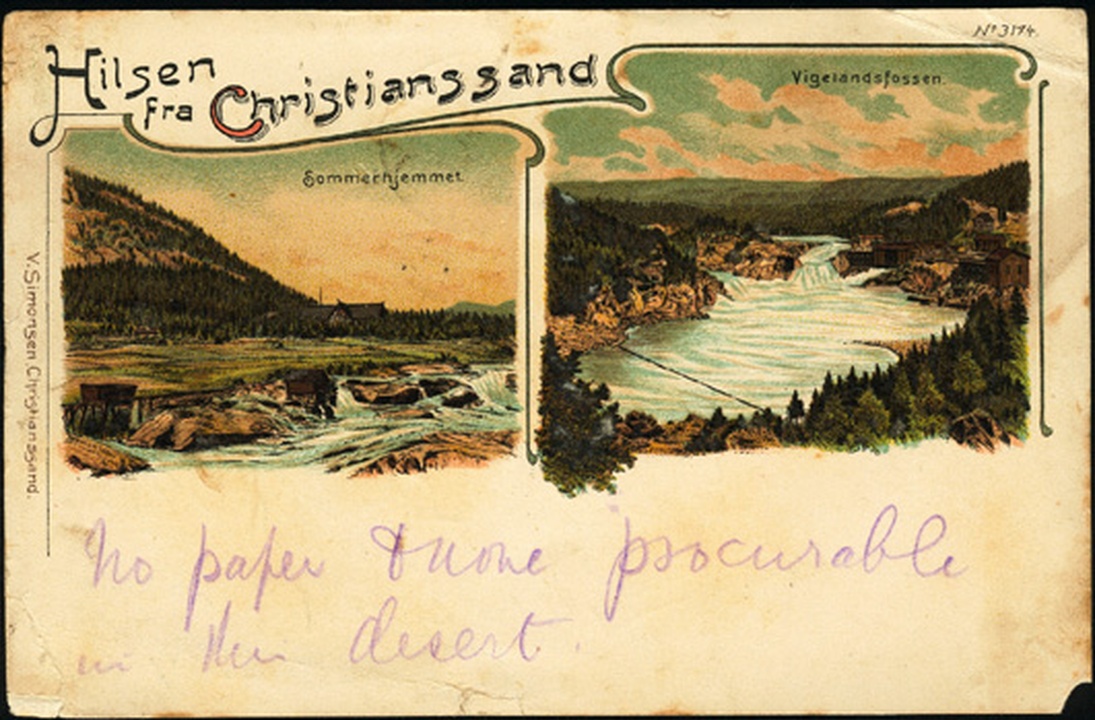 Nº 3174.
Hilsen
fra Christianssand
Vigelandsfossen.
Sommerhjemmet
V. Simonsen, Christianssand.
No paper & none procurable
in this desert.